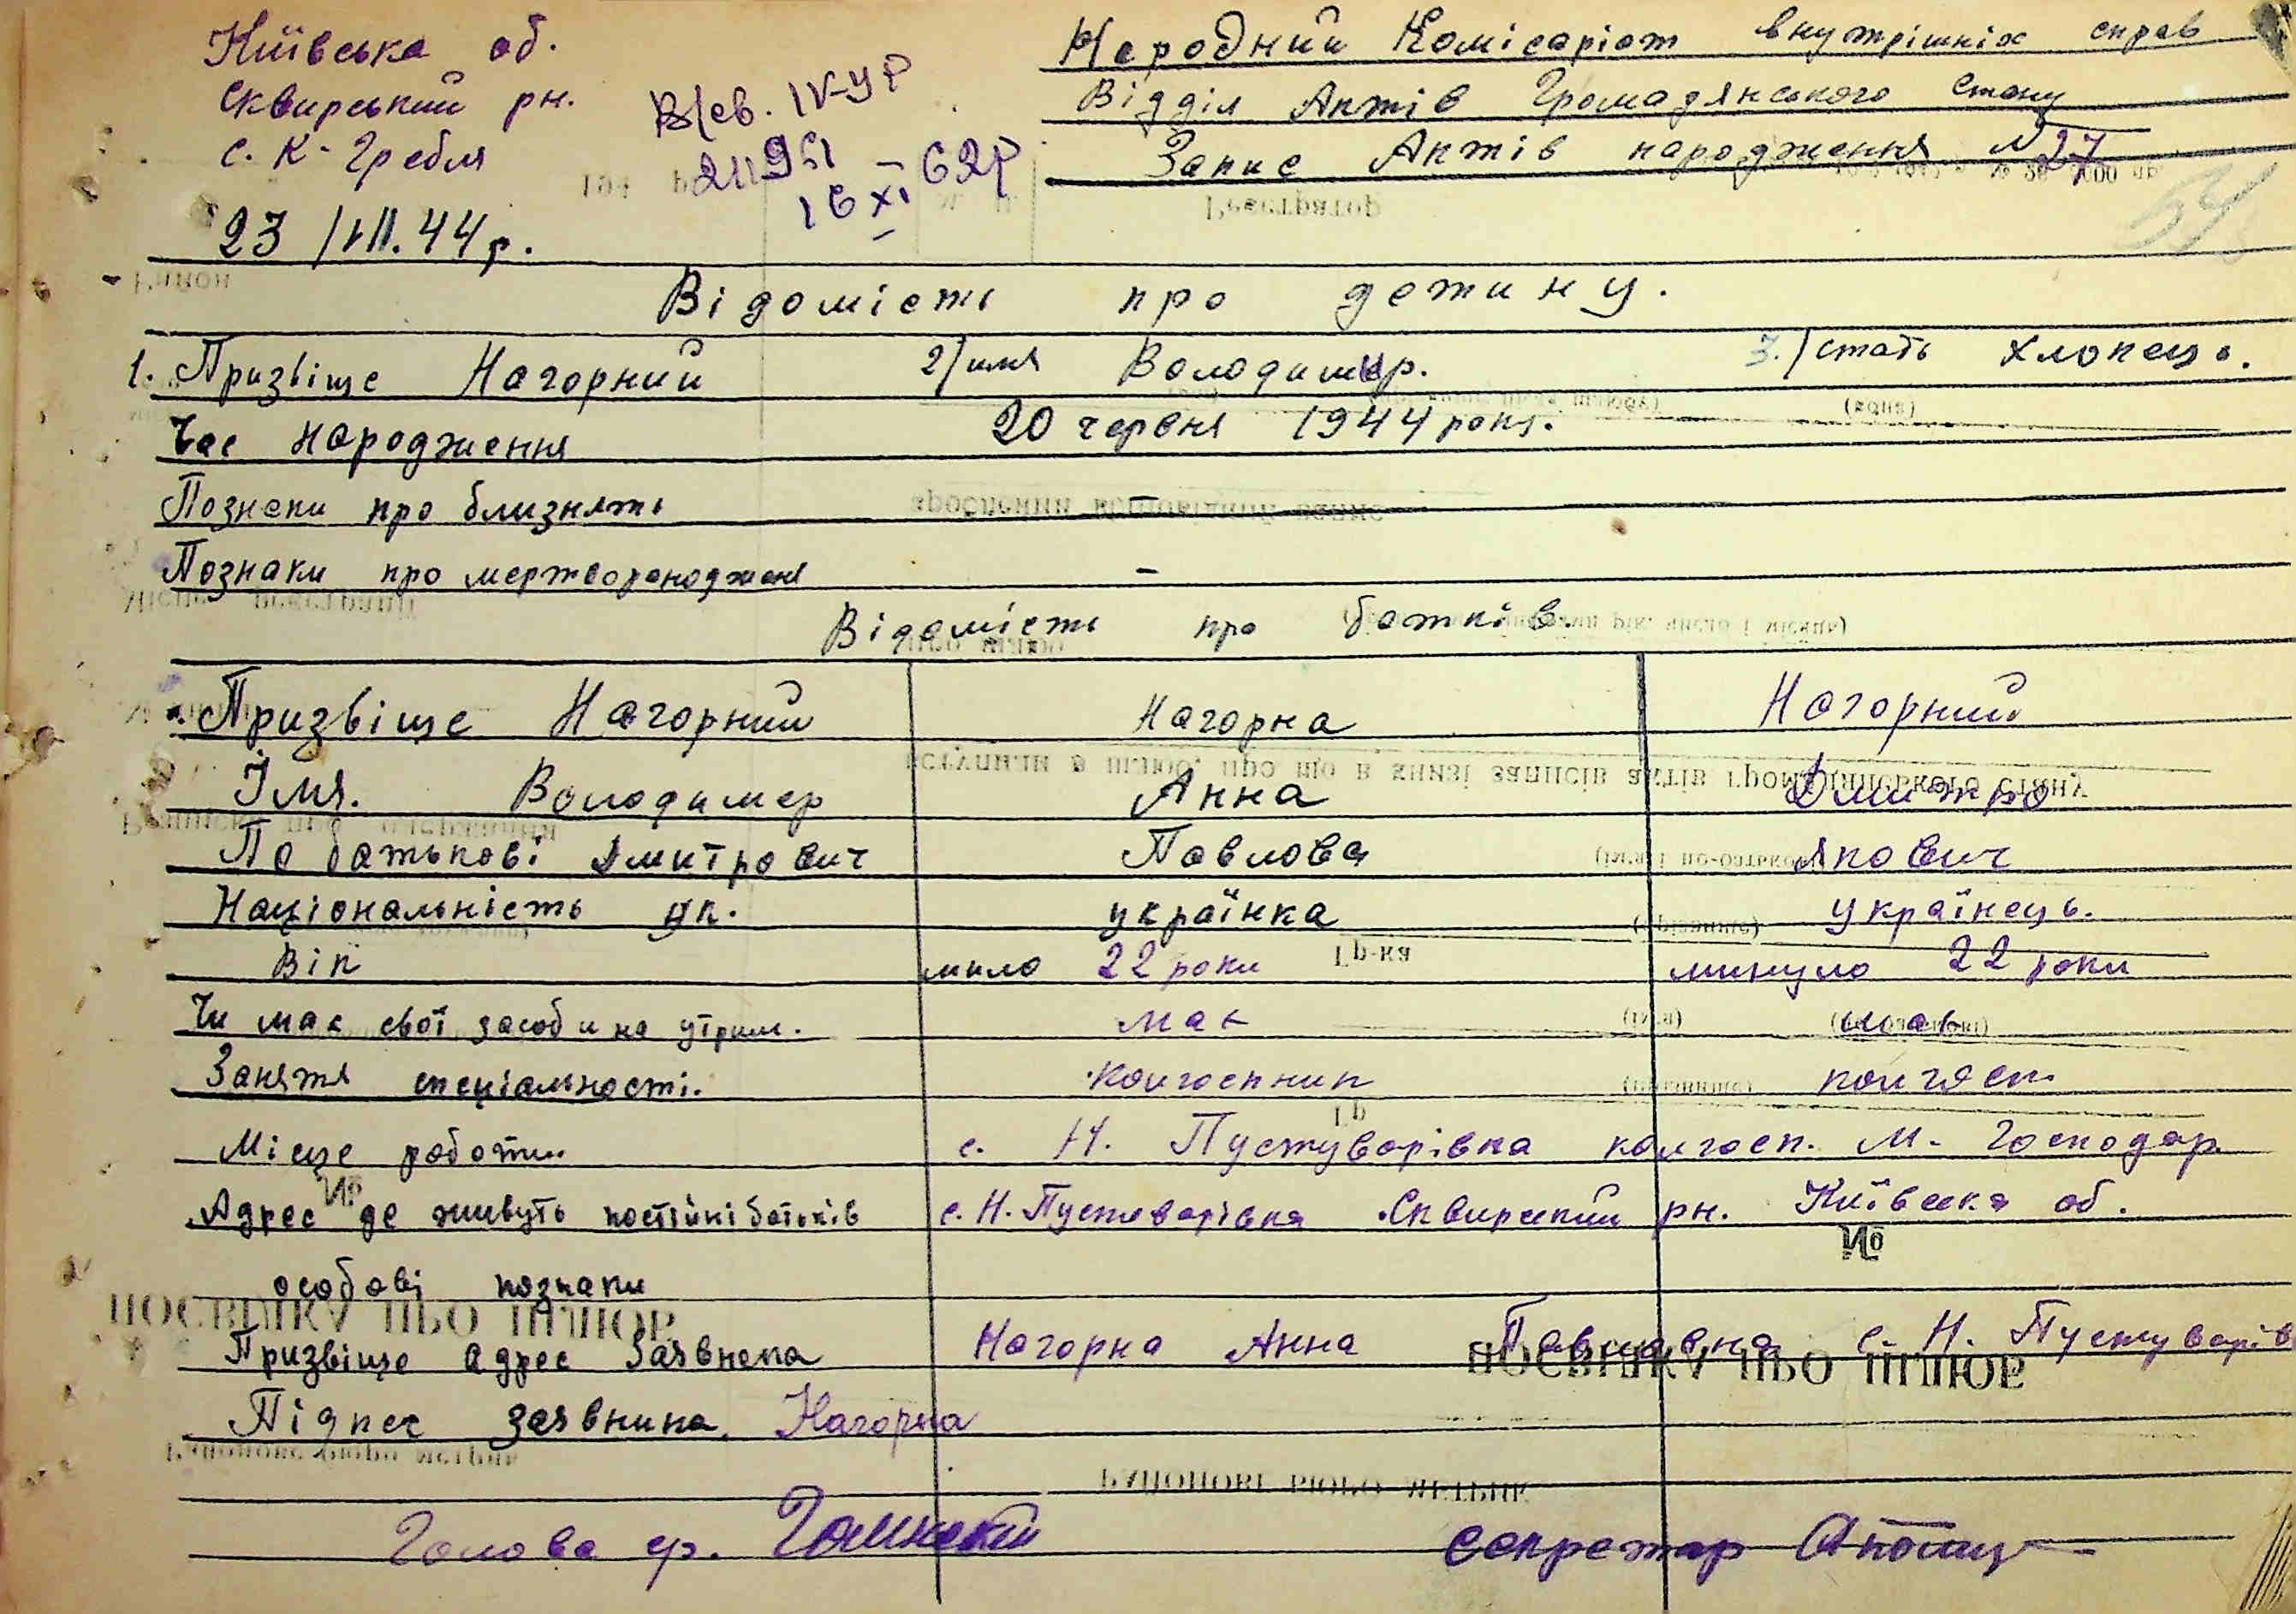 Київська об.
Сквирський рн.
с. К-Гребля
В/св. IV-УР
16 XI - 62р
Народний Комісаріат внутрішніх справ
Відділ Актів Громадянського Стану
Запис Актів народження №27
23/VII.44р.
Відомість про детину.
1. Призвіще Нагорний 2/ имя Володимир. 3./ стать хлопець.
Час народження 20 червня 1944 року.
Познаки про близнять -
Познаки про мертворенодженя -
Відомість про батьків.
Призвіще Нагорний Нагорна Нагорний
Імя. Володимер Анна Дмитро
По батькові Дмитрович Павлова Якович
Національність ук. українка українець.
Вік мило 22 роки минуло 22 роки
Чи має свої засоби на утрим. має має
Заняття спеціальності. колгоспник колгосп
Місце роботи с. Н. Пустуварівка колгосп. М. Господар.
Адрес де живуть постійні батьків с. Н. Пустоварівка Сквирский рн. Київська об.
особові познаки
Призвіще адрес Заявнека Нагорна Анна Павлавна с. Н. Пустуварів
Підпес заявника. Нагорна
Голова ср. секретар